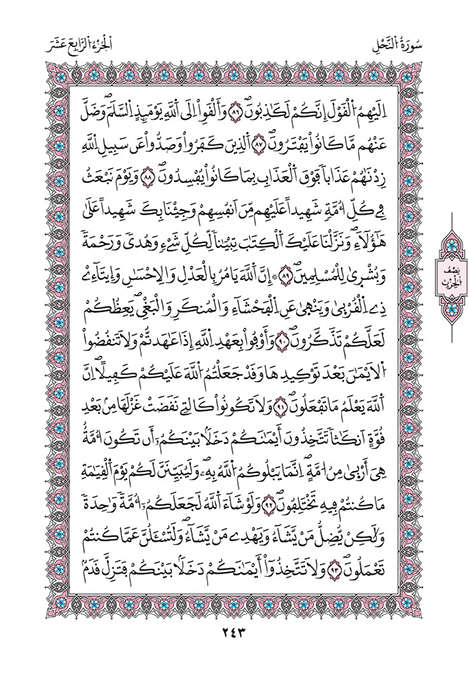 سُورَةُ النَّحْلِ
الْجُزْءُ الرَّابِعَ عَشَرَ
اِلَيْهِمُ الْقَوْلَ إِنَّكُمْ لَكَٰذِبُونَۖ ٨٦ وَأَلْقَوِاْ اِلَى اَللَّهِ يَوْمَئِذٍ اِلسَّلَمَۖ وَضَلَّ
عَنْهُم مَّا كَانُواْ يَفْتَرُونَۖ ٨٧ اَلذِينَ كَفَرُواْ وَصَدُّواْ عَن سَبِيلِ اِللَّهِ
زِدْنَٰهُمْ عَذَاباٗ فَوْقَ اَلْعَذَابِ بِمَا كَانُواْ يُفْسِدُونَۖ ٨٨ وَيَوْمَ نَبْعَثُ
فِے كُلِّ أُمَّةٖ شَهِيداً عَلَيْهِم مِّنَ اَنفُسِهِمْ وَجِئْنَا بِكَ شَهِيداً عَلَىٰ
هَٰؤُلَآءِۖ وَنَزَّلْنَا عَلَيْكَ اَلْكِتَٰبَ تِبْيَٰناٗ لِّكُلِّ شَےْءٖ وَهُدىٗ وَرَحْمَةٗ
وَبُشْرَىٰ لِلْمُسْلِمِينَۖ ٨٩ ۞ إِنَّ اَللَّهَ يَامُرُ بِالْعَدْلِ وَالِاحْسَٰنِ وَإِيتَآءِےْ
ذِے اِلْقُرْبَىٰ وَيَنْهَىٰ عَنِ اِلْفَحْشَآءِ وَالْمُنكَرِ وَالْبَغْيِۖ يَعِظُكُمْ
لَعَلَّكُمْ تَذَّكَّرُونَۖ ٩٠ وَأَوْفُواْ بِعَهْدِ اِللَّهِ إِذَا عَٰهَدتُّمْ وَلَا تَنقُضُواْ
اُلَايْمَٰنَ بَعْدَ تَوْكِيدِهَا وَقَدْ جَعَلْتُمُ اُللَّهَ عَلَيْكُمْ كَفِيلاًۖ اِنَّ
اَللَّهَ يَعْلَمُ مَا تَفْعَلُونَۖ ٩١ وَلَا تَكُونُواْ كَالتِے نَقَضَتْ غَزْلَهَا مِنۢ بَعْدِ
قُوَّةٍ اَنكَٰثاٗ تَتَّخِذُونَ أَيْمَٰنَكُمْ دَخَلَاۢ بَيْنَكُمُۥٓ أَن تَكُونَ أُمَّةٌ
هِيَ أَرْبَىٰ مِنُ امَّةٍۖ اِنَّمَا يَبْلُوكُمُ اُللَّهُ بِهِۦۖ وَلَيُبَيِّنَنَّ لَكُمْ يَوْمَ اَلْقِيَٰمَةِ
مَا كُنتُمْ فِيهِ تَخْتَلِفُونَۖ ٩٢ وَلَوْ شَآءَ اَللَّهُ لَجَعَلَكُمُۥٓ أُمَّةٗ وَٰحِدَةٗ
وَلَٰكِنْ يُّضِلُّ مَنْ يَّشَآءُ وَيَهْدِے مَنْ يَّشَآءُۖ وَلَتُسْـَٔلُنَّ عَمَّا كُنتُمْ
تَعْمَلُونَۖ ٩٣ وَلَا تَتَّخِذُوٓاْ أَيْمَٰنَكُمْ دَخَلَاۢ بَيْنَكُمْ فَتَزِلَّ قَدَمُۢ
نِصْف
الْحِزْب
٢٤٣